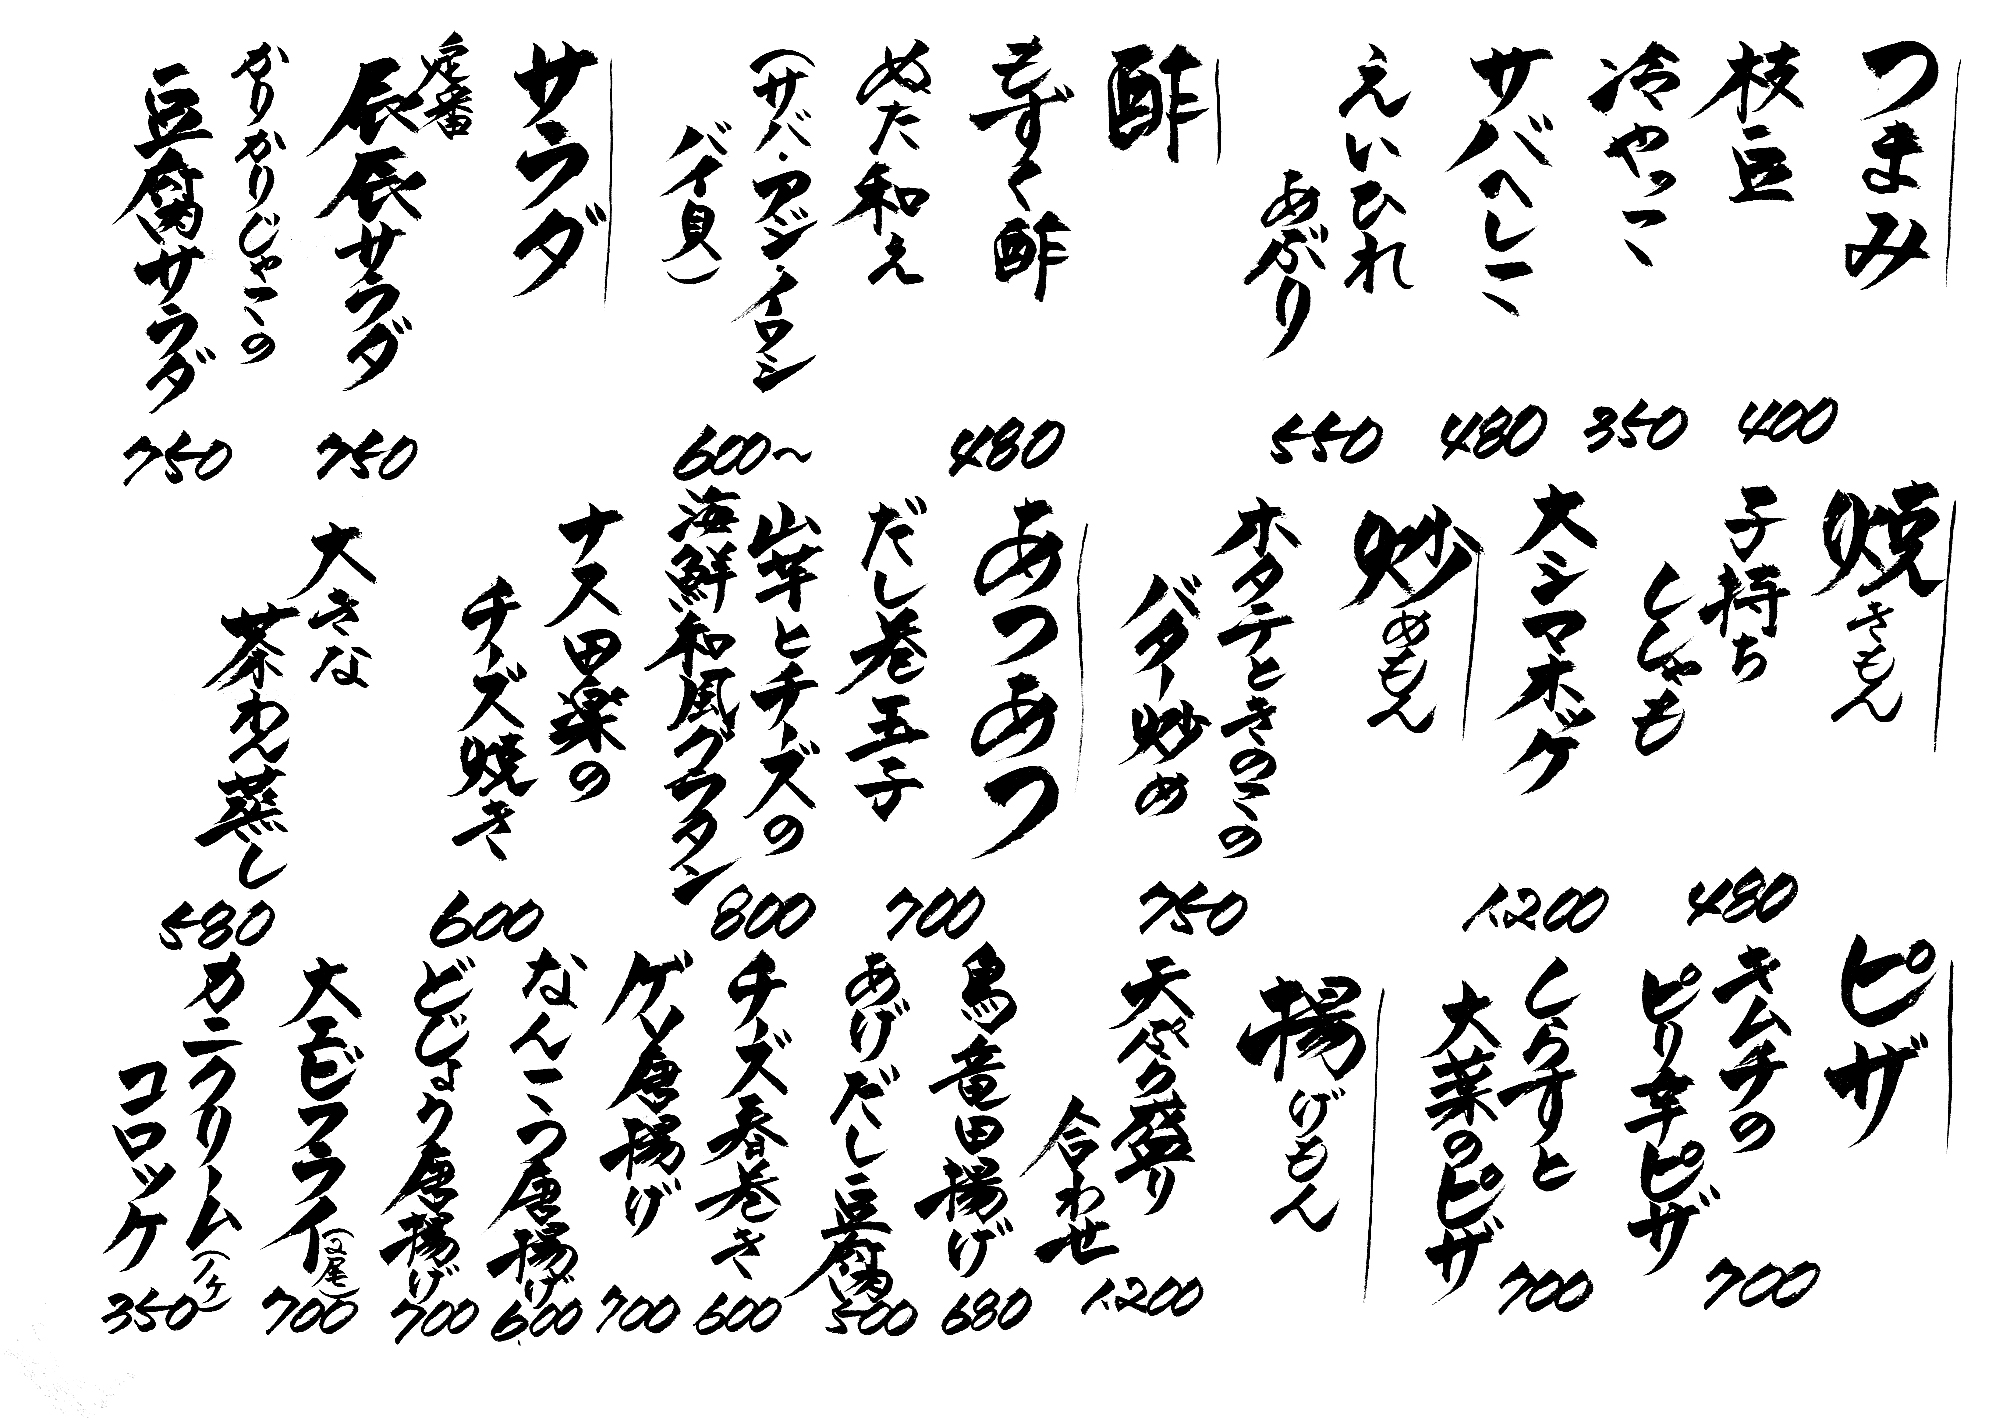 つまみ
枝豆
400
冷やっこ
350
サバへしこ
480
えいひれ
あぶり
550
酢
もずく酢
480
ぬた和え
(サバ・アジ・イワシ
バイ貝)
600〜
サラダ
定番
辰辰サラダ
750
かりかりじゃこの
豆腐サラダ
750
焼きもん
子持ち
ししゃも
480
大シマホッケ
1200
炒めもん
ホタテときのこの
バター炒め
750
あつあつ
だし巻玉子
700
山芋とチーズの
海鮮和風グラタン
800
ナス田楽の
チーズ焼き
600
大きな
茶わん蒸し
580
ピザ
キムチの
ピリ辛ピザ
700
しらすと
大葉のピザ
700
揚げもん
天ぷら盛り
合わせ
1200
鳥竜田揚げ
680
あげだし豆腐
500
チーズ春巻き
600
ゲソ唐揚げ
700
なんこつ唐揚げ
600
どじょう唐揚げ
700
大エビフライ(2尾)
700
カニクリーム(1ケ)
コロッケ
350